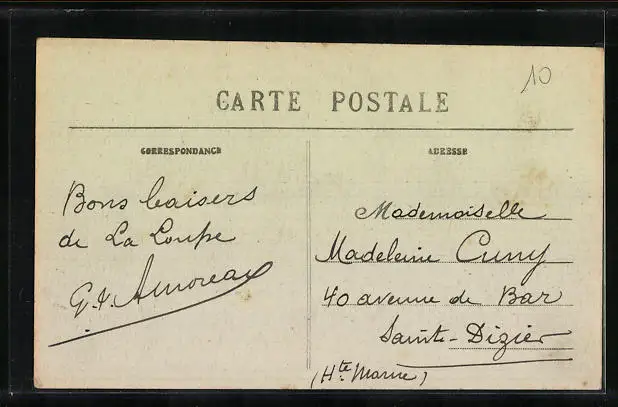 10
CARTE POSTALE
CORRESPONDANCE
Bons baisers
de La Loupe
G. & Amoreau
ADRESSE
Mademoiselle
Madeleine Cuny
40 avenue de Bar
Sainte-Dizier
(Hte Marne)